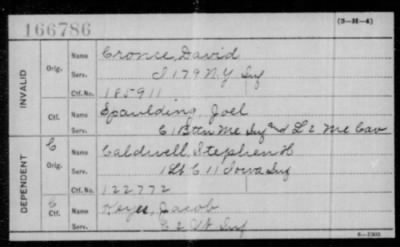 166786
(3-M-4)
INVALID
Orig.
Name Cronce, David
Serv. I 179 N.Y. Inf
Ctf. No. 185911
Ctf.
Name Spaulding, Joel
Serv. C 1 Battn Me Inf and L 2 Me Cav
DEPENDENT
C
Orig.
Name Caldwell, Stephen H
Serv. 1 Lt C 11 Iowa Inf
Ctf. No. 122772
C
Ctf.
Name Jacob
Serv. 2 Inf
6—2303